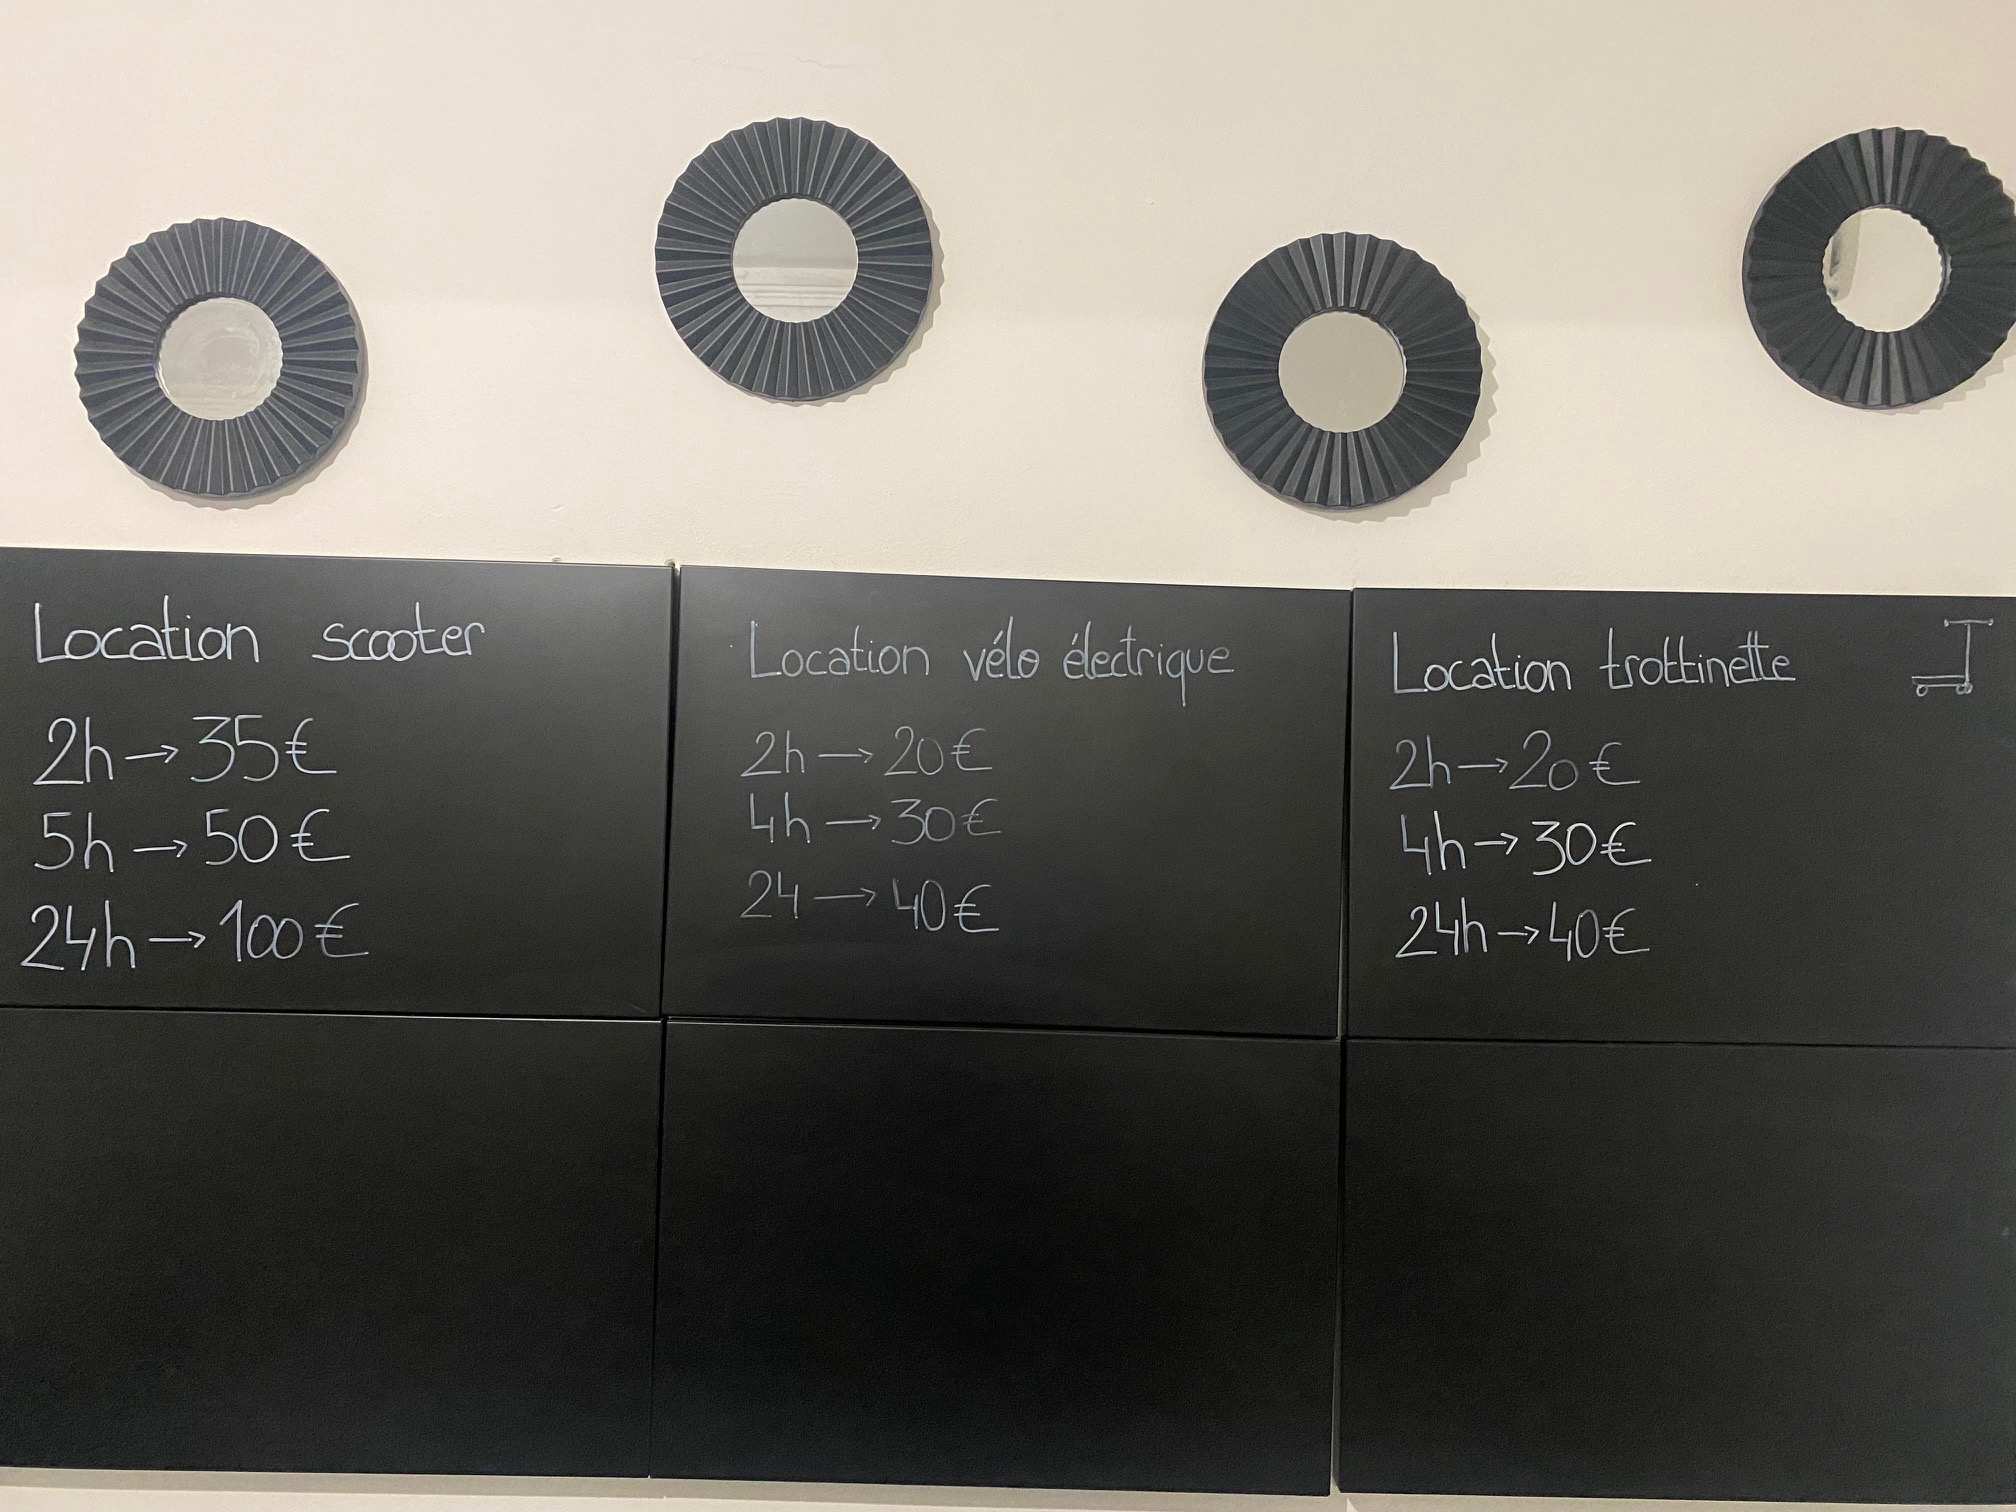 Location scooter
2h → 35€
5h → 50€
24h → 100€
Location vélo électrique
2h → 20€
4h → 30€
24 → 40€
Location trottinette
2h → 20€
4h → 30€
24h → 40€